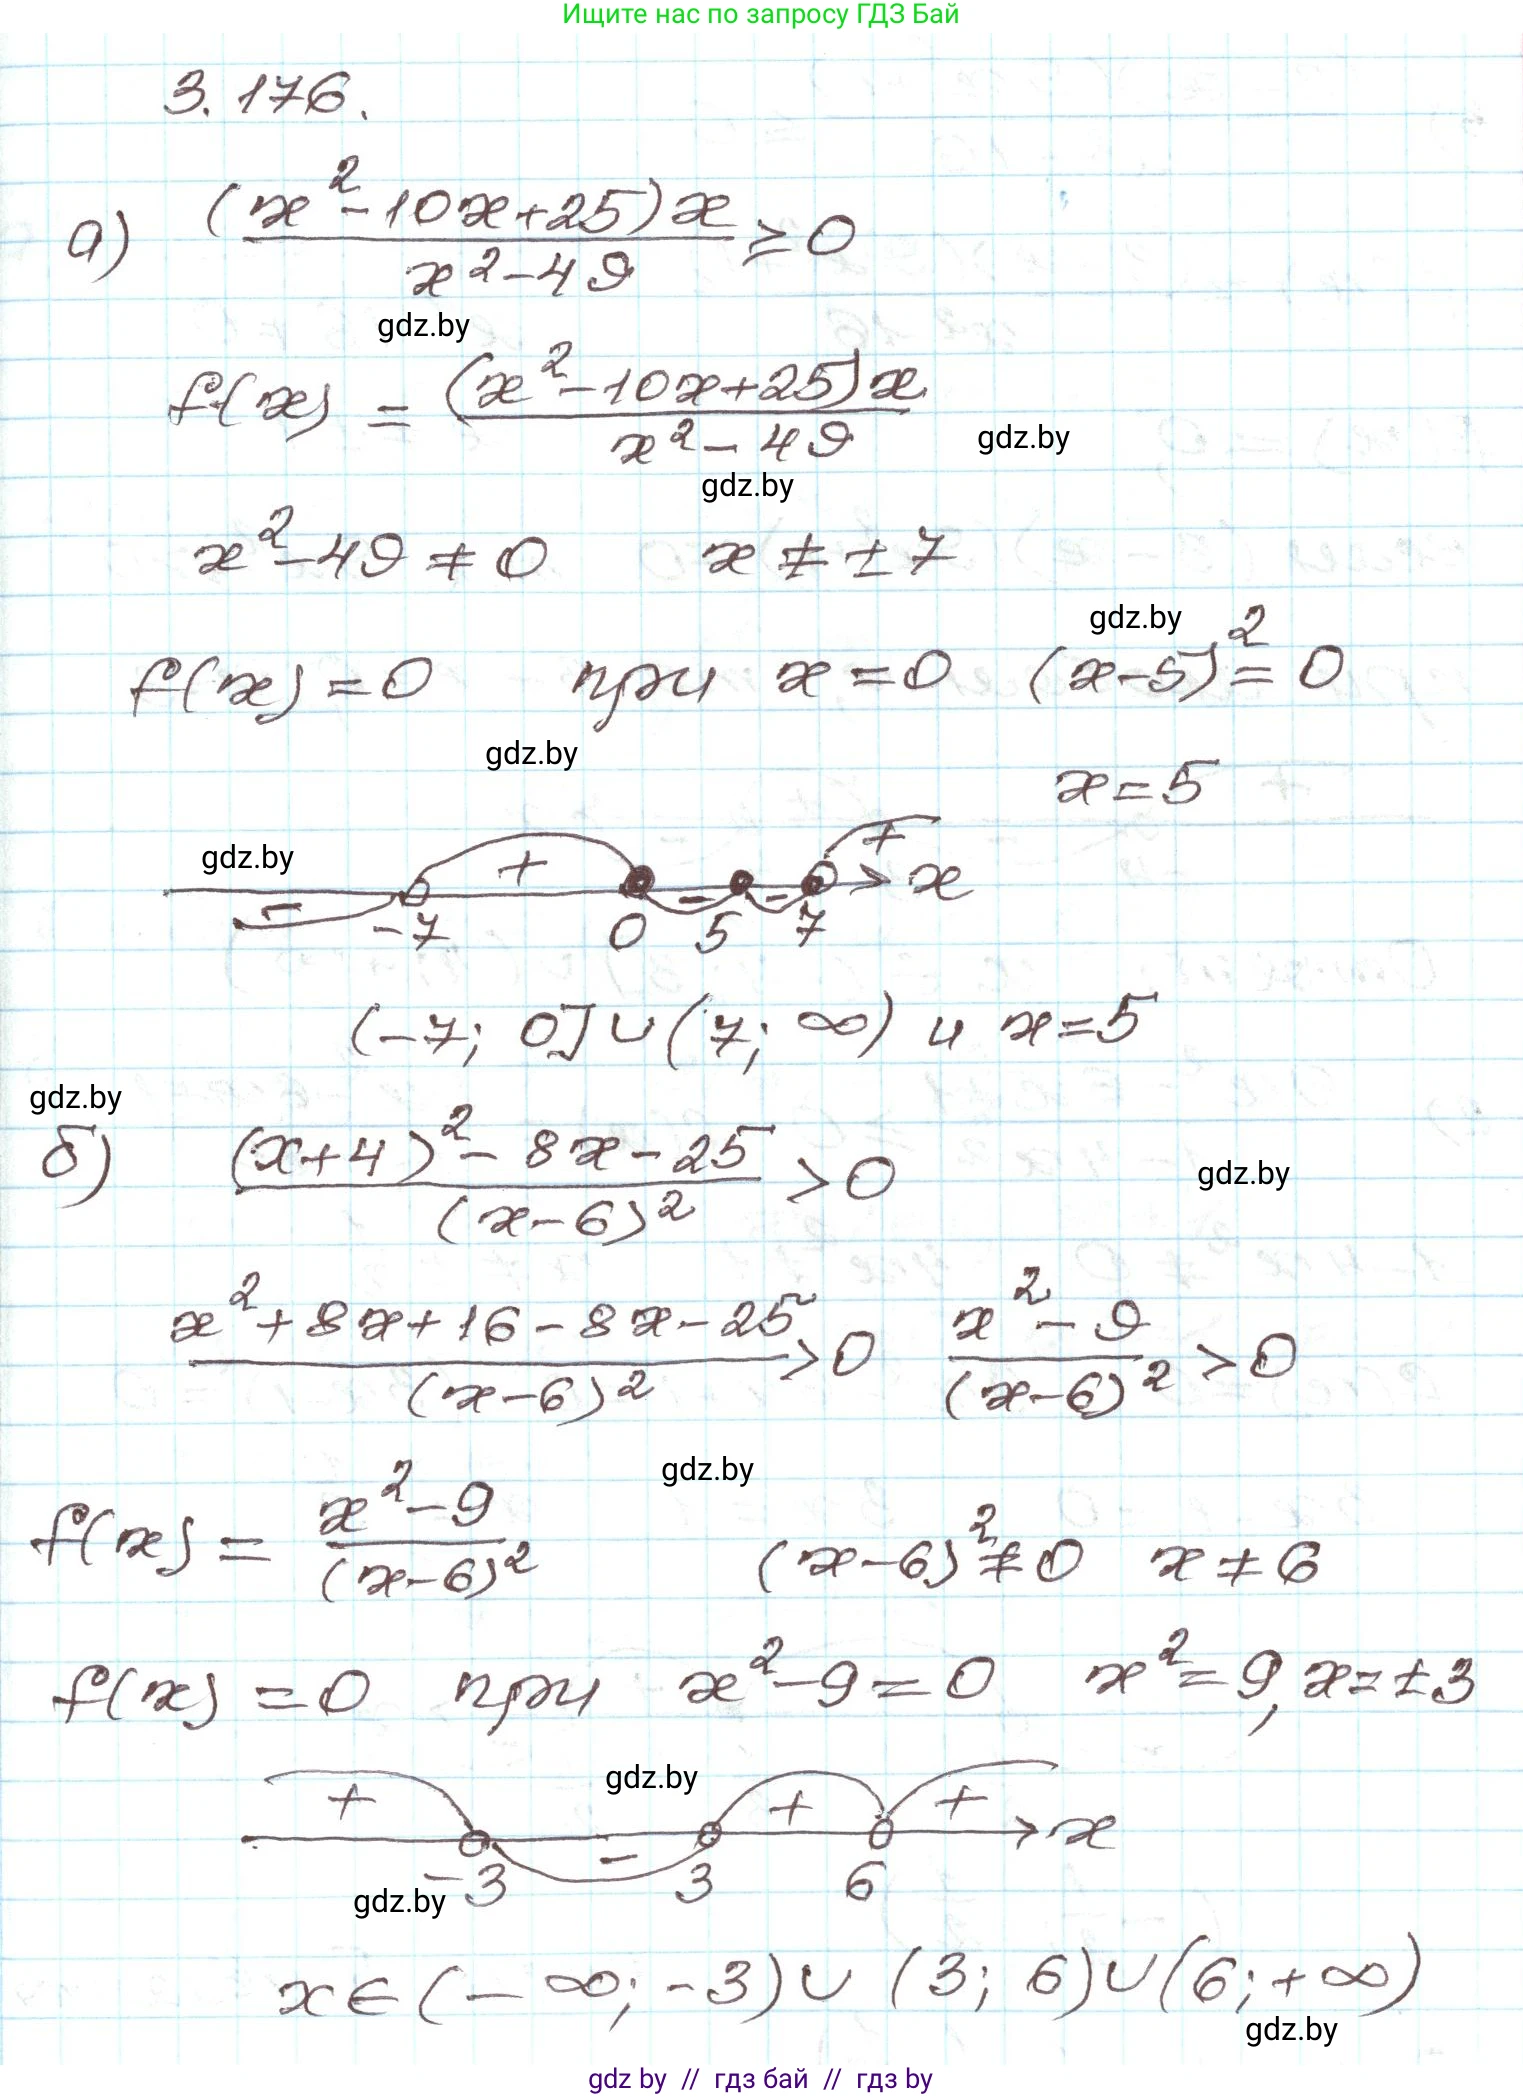 Ищите нас по запросу ГДЗ Бай
3.176.
а) (x²-10x+25)x / x²-49 ≥ 0
gdz.by
f(x) = (x²-10x+25)x / x²-49
gdz.by
gdz.by
x²-49≠0 x≠±7
gdz.by
f(x)=0 при x=0 (x-5)²=0
gdz.by
x=5
gdz.by
- + - - + x
-7 0 5 7
(-7; 0]∪(7; ∞) и x=5
gdz.by
б) (x+4)²-8x-25 / (x-6)² >0
gdz.by
x²+8x+16-8x-25 / (x-6)² >0 x²-9 / (x-6)² >0
gdz.by
f(x) = x²-9 / (x-6)² (x-6)²≠0 x≠6
f(x)=0 при x²-9=0 x²=9, x=±3
gdz.by
+ - + + x
-3 3 6
gdz.by
x∈(-∞;-3)∪(3; 6)∪(6;+∞)
gdz.by
gdz by // гдз бай // гдз by